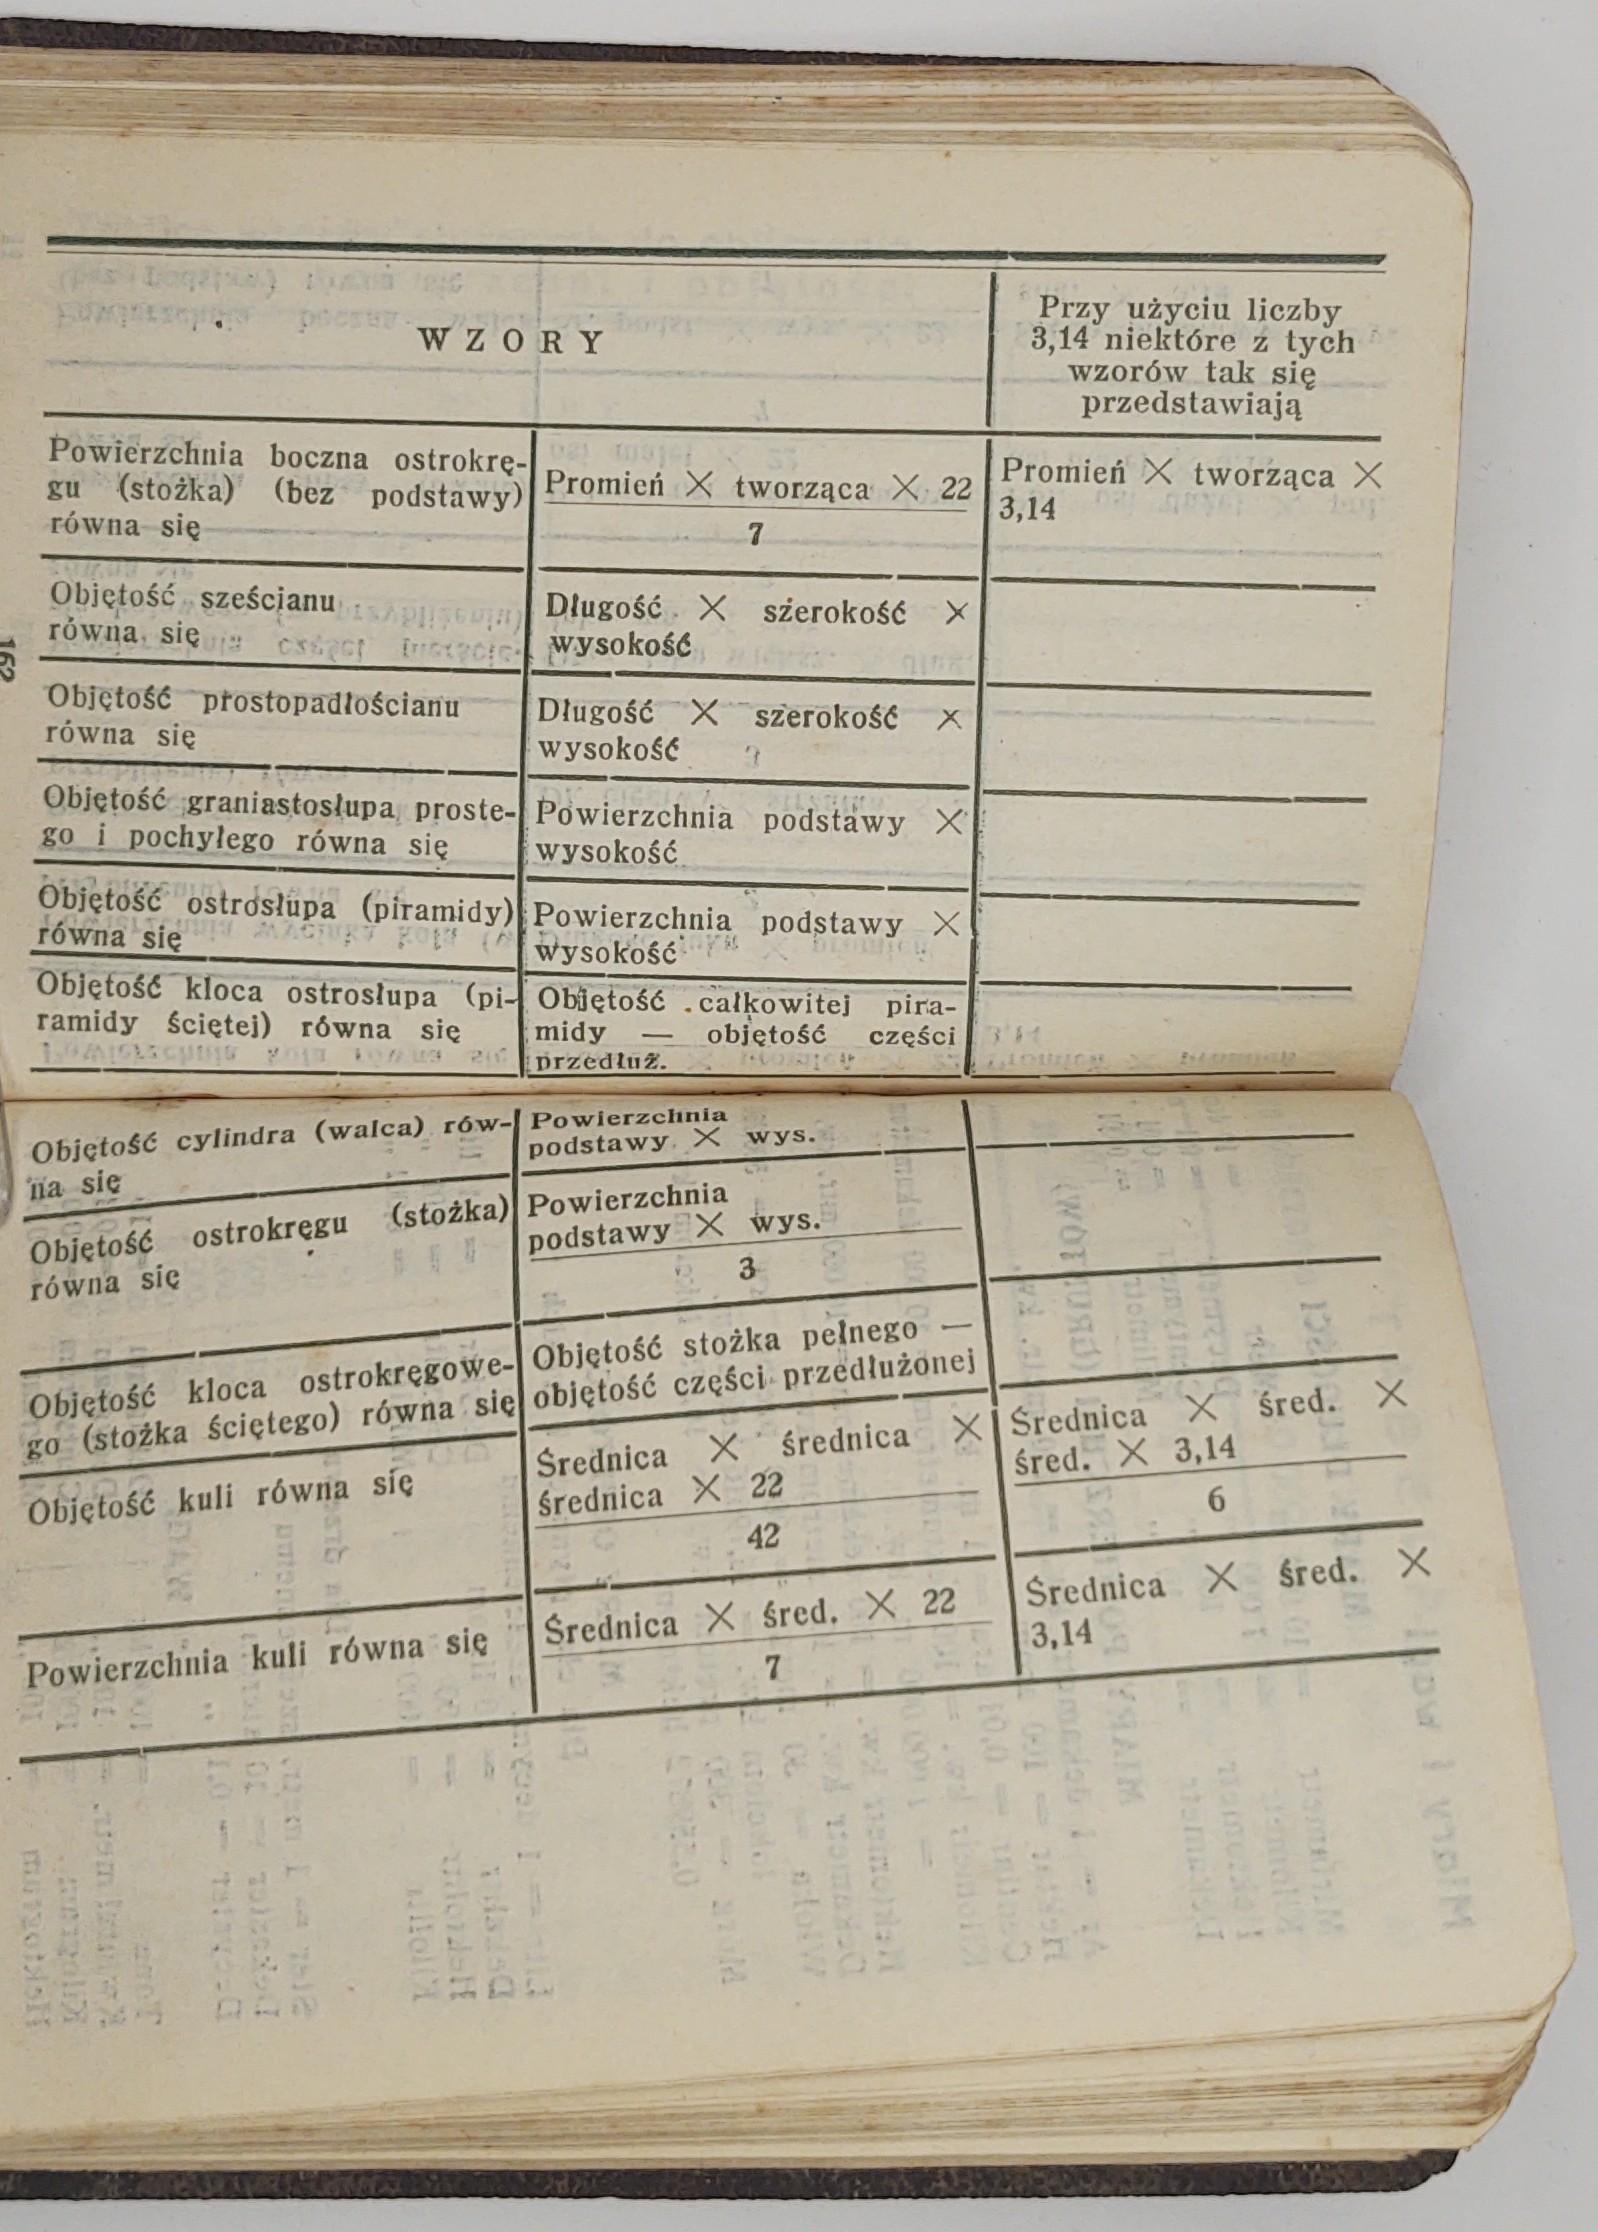 WZORY
Przy użyciu liczby
3,14 niektóre z tych
wzorów tak się
przedstawiają
Powierzchnia boczna ostrokrę-
gu (stożka) (bez podstawy)
równa się
Promień × tworząca × 22
7
Promień × tworząca ×
3,14
Objętość sześcianu
równa się
Długość × szerokość ×
wysokość
Objętość prostopadłościanu
równa się
Długość × szerokość ×
wysokość
Objętość graniastosłupa proste-
go i pochyłego równa się
Powierzchnia podstawy ×
wysokość
Objętość ostrosłupa (piramidy)
równa się
Powierzchnia podstawy ×
wysokość
Objętość kloca ostrosłupa (pi-
ramidy ściętej) równa się
Objętość całkowitej pira-
midy — objętość części
przedłuż.
Objętość cylindra (walca) rów-
na się
Powierzchnia
podstawy × wys.
Objętość ostrokręgu (stożka)
równa się
Powierzchnia
podstawy × wys.
3
Objętość kloca ostrokręgowe-
go (stożka ściętego) równa się
Objętość stożka pełnego —
objętość części przedłużonej
Objętość kuli równa się
Średnica × średnica ×
średnica × 22
42
Średnica × śred. ×
śred. × 3,14
6
Powierzchnia kuli równa się
Średnica × śred. × 22
7
Średnica × śred. ×
3,14
162